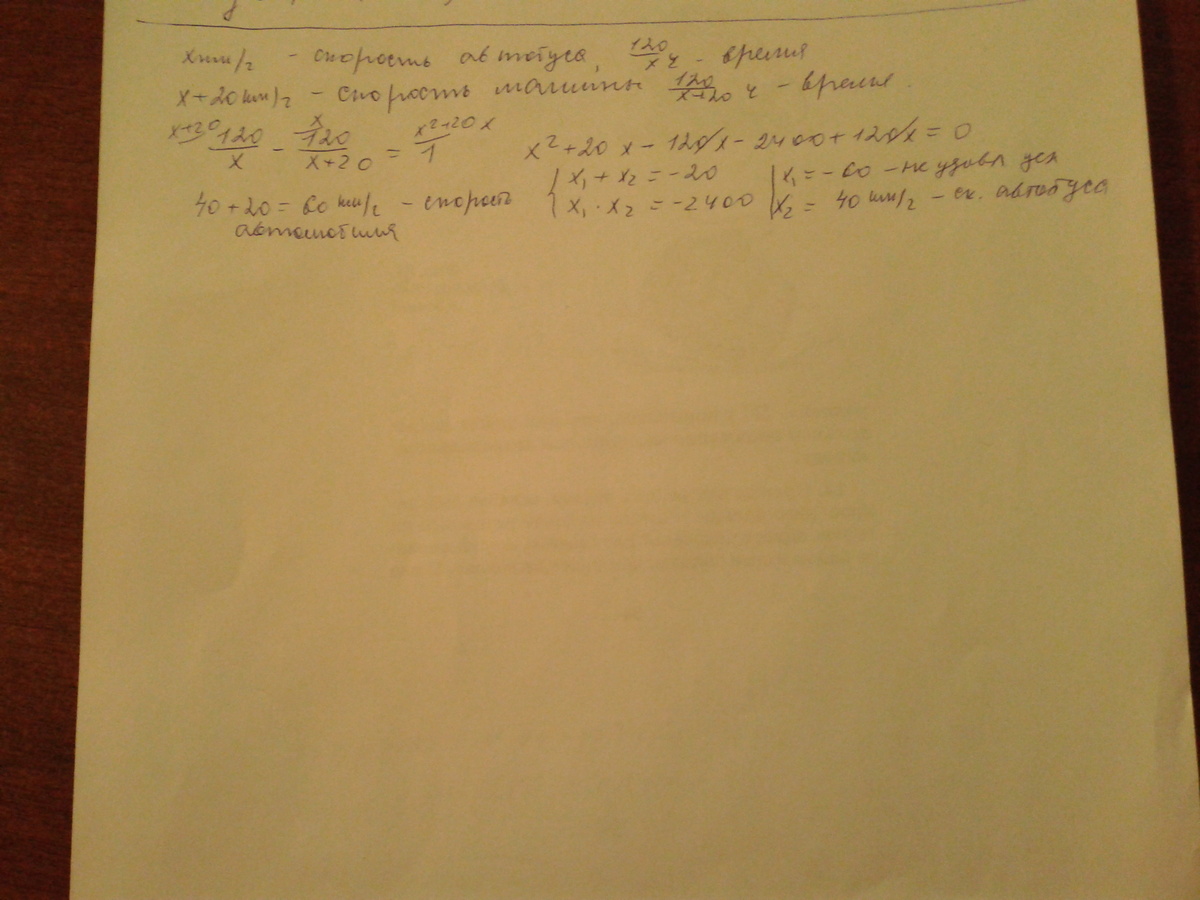 x км/г - скорость автобуса, 120/x ч - время
x+20 км/г - скорость машины 120/x+20 ч - время.
x+20 120/x - x 120/x+20 = x²+20x 1
x² + 20 x - 120x - 2400 + 120x = 0
{ x₁ + x₂ = -20
x₁ · x₂ = -2400
x₁ = -60 - не удовл усл
x₂ = 40 км/г - ск. автобуса
40 + 20 = 60 км/г - скорость
автомобиля